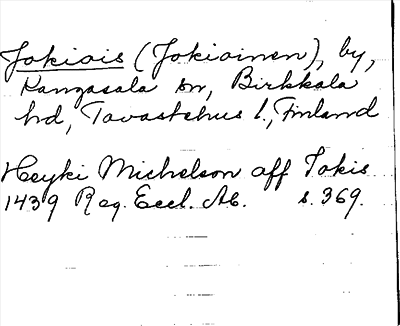 Jokiois (Jokioinen), by,
Kangasala sn, Birkkala
hd, Tavastehus l., Finland
Heyki Michelson aff Jokis
1439 Reg. Eccl. Ab. s. 369.